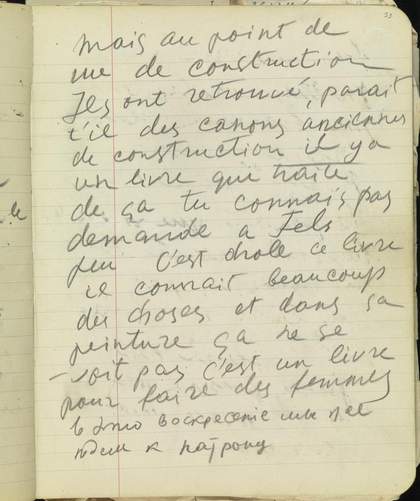 mais au point de
vue de construction
Ils ont retrouvé, parait
t'il des canons anciennes
de construction il y a
un livre qui traite
de ça tu connais pas
demande a Fels
c'est drole ce livre
connait beaucoup
des choses et dans sa
peinture ça ne se
– voit pas c'est un livre
pour faire des femmes
в это воскресение мы не
патрону